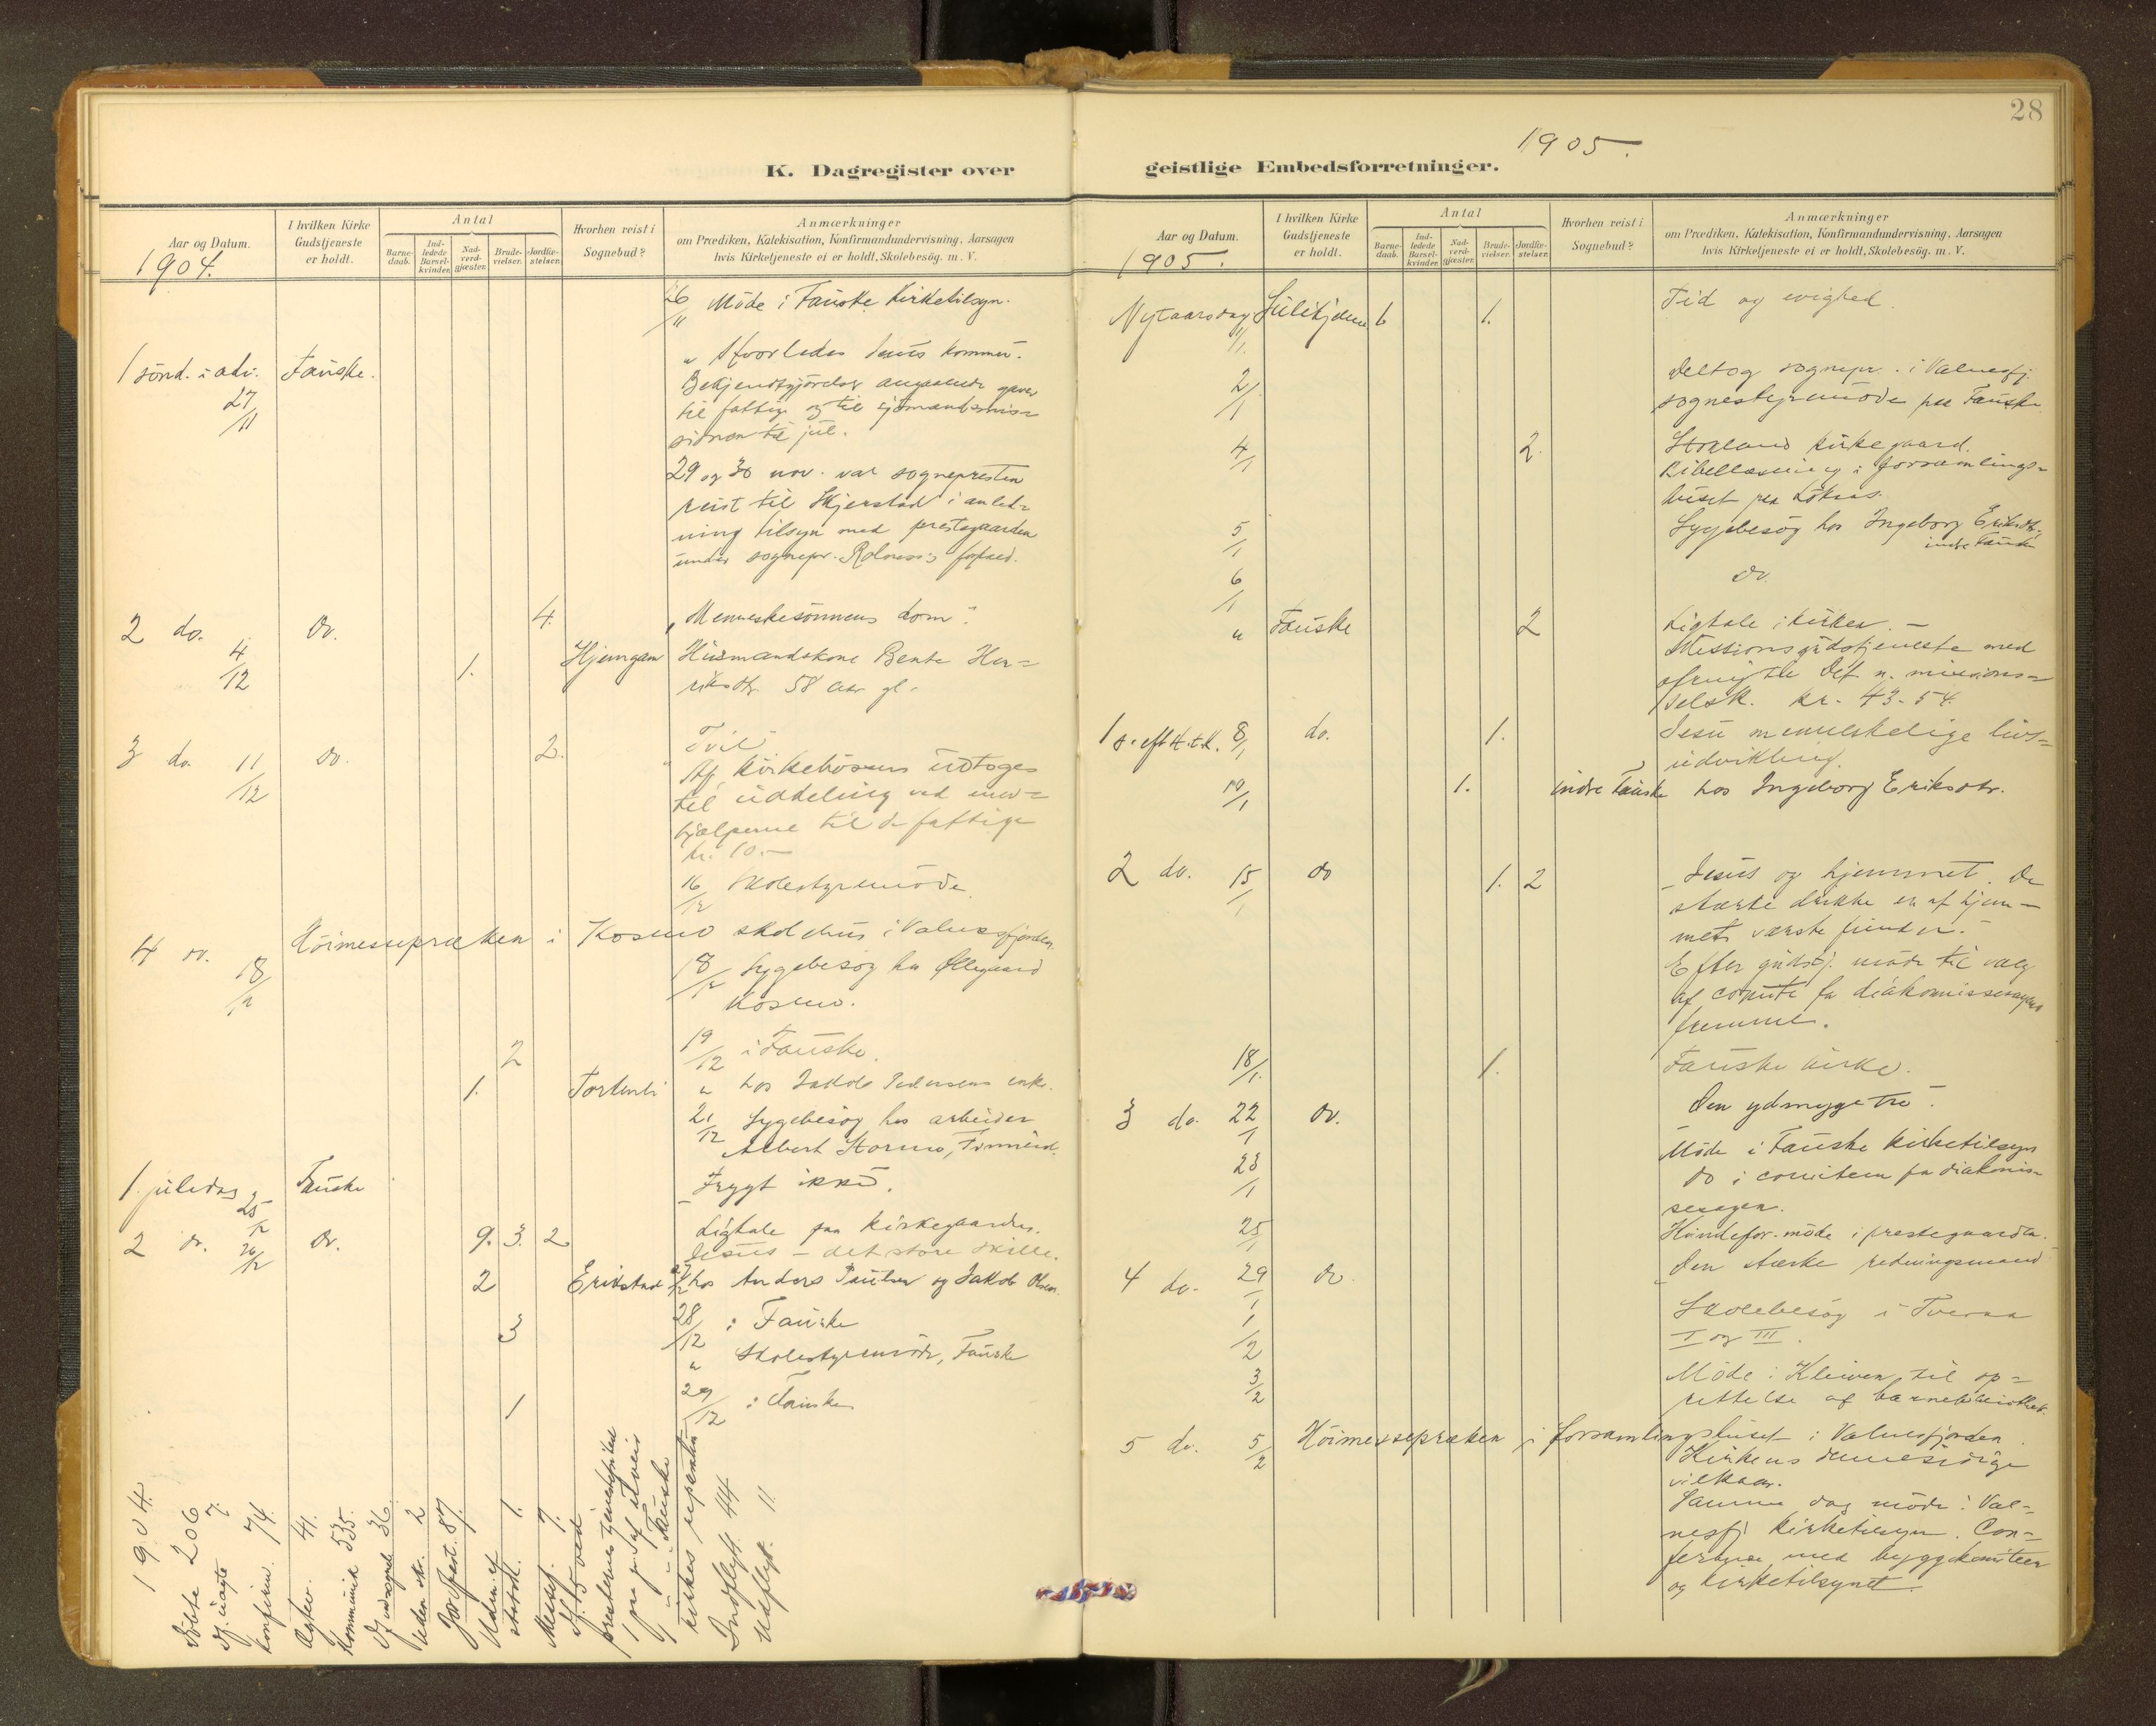 K. Dagregister over
Aar og Datum.
1904.
I hvilken Kirke
Gudstjeneste
er holdt.
Antal
Barne-
daab.
Ind-
ledede
Barsel-
kvinder.
Nad-
verd-
gjæster.
Brude-
vielser.
Jordfæ-
stelser.
Hvorhen reist i
Sognebud?
Anmærkninger
om Prædiken, Katekisation, Konfirmandundervisning, Aarsagen
hvis Kirketjeneste ei er holdt, Skolebesøg. m. V.
26/11 Møde i Fauske kirketilsyn.
1 sønd. i adv. 27/11 Fauske.
Hvorledes Jesus kommer.
Bekjendtgjørelse angaaende gaver
til fattige og til sjømandsmis=
sionen til jul.
29 og 30 nov. var sognepresten
reist til Skjerstad i anled=
ning tilsyn med prestegaarden
under sognepr. forfald.
2 do. 4/12 do. 4. „Menneskesønnens dom“.
1. Hjemgam Husmandskone Bente Hen=
riksdtr. 58 aar gl.
3 do. 11/12 do. 2. „Tvil“
Af kirkebøssen udtoges
til uddeling ved med=
hjælperne til de fattige
kr. 10.—
16/12 Skolestyremøde.
4 do. 18/12 Høimessepræken i Kosmo skolehus i Valnesfjorden.
18/12 Sygebesøg hos Ellegaard
Kosmo.
2 19/12 i Fauske.
1. " hos Jakob Pedersens enke.
21/12 Sygebesøg hos arbeider
Albert Stormo, Finneid.
1. juledag 25/12 Fauske Frygt ikke.
2 do. 26/12 do. 9. 3. 2 Ligtale paa kirkegaarden.
Jesus – det store skille.
2 Erikstad hos Anders Paulsen og Jakob Olsen.
3 28/12 i Fauske
" Skolestyremøde, Fauske
1 29/12 i Fauske
1904.
Døbte 206
Df. uægte 7.
Konfirm. 74.
Ægtev. 41.
Kommunik. 535.
Af udsogned 36.
Uden skr. 2
Jordfæst. 87.
Udm. af
statsk. 1.
Messef. 7.
Indflytt. 44
Udflytt. 11.
28
1905.
geistlige Embedsforretninger.
Aar og Datum.
1905.
I hvilken Kirke
Gudstjeneste
er holdt.
Antal
Barne-
daab.
Ind-
ledede
Barsel-
kvinder.
Nad-
verd-
gjæster.
Brude-
vielser.
Jordfæ-
stelser.
Hvorhen reist i
Sognebud?
Anmærkninger
om Prædiken, Katekisation, Konfirmandundervisning, Aarsagen
hvis Kirketjeneste ei er holdt, Skolebesøg. m. V.
Nytaarsdag 1/1. Sulitjelma 6 1. Tid og evighed.
2/1 Deltog sognepr. i Valnesfj.
sognestyremøde paa Fauske.
4/1 2. kirkegaard.
Bibellæsning i forsamlings=
huset paa Løkaas.
5/1 Sygebesøg hos Ingeborg Eriksdtr.,
indre Fauske
6/1 do.
" Fauske 2 Ligtale i kirken. —
Missionsgudstjeneste med
ofring til Det n. missions=
selsk. kr. 43.54.
1 s. eft. H.t.K. 8/1 do. 1. Jesu menneskelige livs=
udvikling.
10/1 1. indre Fauske hos Ingeborg Eriksdtr.
2 do. 15/1 do 1. 2 Jesus og hjemmet. De
stærke drikke en af hjem=
mets værste fiender.
Efter gudstj. møde til valg
af comite for diakonissesagens
fremme.
18/1. 1. Fauske kirke.
3 do. 22/1 do. Den ydmyge tro.
23/1 Møde i Fauske kirketilsyn
do i comiteen for diakonis=
sesagen.
25/1 møde i prestegaarden.
4 do. 29/1 do Den stærke redningsmand
1/2 Skolebesøg i Tveraa
I og III.
3/2 Møde i Kleiven til op=
rettelse af barnebibliothek.
5 do. 5/2 Høimessepræken i forsamlingshuset i Valnesfjorden.
Kirkens
vilkaar.
Samme dag møde i Val=
nesfj. kirketilsyn. Con=
ferense med byggekomiteen
og kirketilsynet.